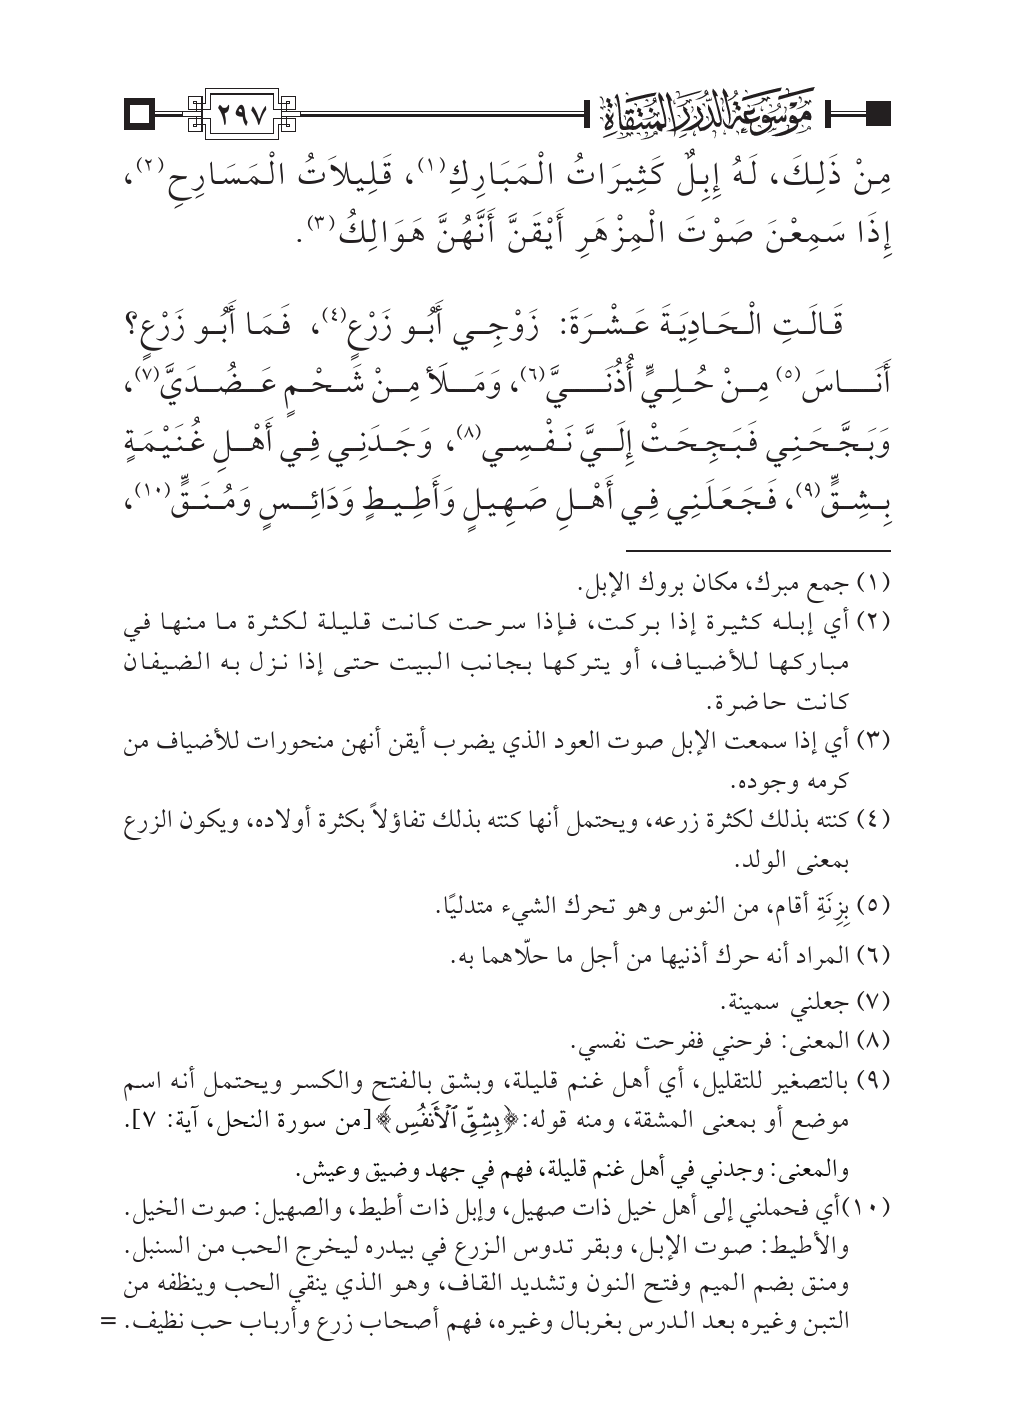 موسوعة الدرر المنتقاة
٢٩٧
مِنْ ذَلِكَ، لَهُ إِبِلٌ كَثِيرَاتُ الْمَبَارِكِ(١)، قَلِيلاَتُ الْمَسَارِحِ(٢)،
إِذَا سَمِعْنَ صَوْتَ الْمِزْهَرِ أَيْقَنَّ أَنَّهُنَّ هَوَالِكُ(٣).
قَالَتِ الْحَادِيَةَ عَشْرَةَ: زَوْجِي أَبُو زَرْعٍ(٤)، فَمَا أَبُو زَرْعٍ؟
أَنَاسَ(٥) مِنْ حُلِيٍّ أُذُنَيَّ(٦)، وَمَلَأَ مِنْ شَحْمٍ عَضُدَيَّ(٧)،
وَبَجَّحَنِي فَبَجِحَتْ إِلَيَّ نَفْسِي(٨)، وَجَدَنِي فِي أَهْلِ غُنَيْمَةٍ
بِشِقٍّ(٩)، فَجَعَلَنِي فِي أَهْلِ صَهِيلٍ وَأَطِيطٍ وَدَائِسٍ وَمُنَقٍّ(١٠)،
(١) جمع مبرك، مكان بروك الإبل.
(٢) أي إبله كثيرة إذا بركت، فإذا سرحت كانت قليلة لكثرة ما منها في
مباركها للأضياف، أو يتركها بجانب البيت حتى إذا نزل به الضيفان
كانت حاضرة.
(٣) أي إذا سمعت الإبل صوت العود الذي يضرب أيقن أنهن منحورات للأضياف من
كرمه وجوده.
(٤) كنته بذلك لكثرة زرعه، ويحتمل أنها كنته بذلك تفاؤلاً بكثرة أولاده، ويكون الزرع
بمعنى الولد.
(٥) بِزِنَةِ أقام، من النوس وهو تحرك الشيء متدليًا.
(٦) المراد أنه حرك أذنيها من أجل ما حلّاهما به.
(٧) جعلني سمينة.
(٨) المعنى: فرحني ففرحت نفسي.
(٩) بالتصغير للتقليل، أي أهل غنم قليلة، وبشق بالفتح والكسر ويحتمل أنه اسم
موضع أو بمعنى المشقة، ومنه قوله: ﴿بِشِقِّ ٱلْأَنفُسِ﴾ [من سورة النحل، آية: ٧].
والمعنى: وجدني في أهل غنم قليلة، فهم في جهد وضيق وعيش.
(١٠) أي فحملني إلى أهل خيل ذات صهيل، وإبل ذات أطيط، والصهيل: صوت الخيل.
والأطيط: صوت الإبل، وبقر تدوس الزرع في بيدره ليخرج الحب من السنبل.
ومنق بضم الميم وفتح النون وتشديد القاف، وهو الذي ينقي الحب وينظفه من
التبن وغيره بعد الدرس بغربال وغيره، فهم أصحاب زرع وأرباب حب نظيف. =